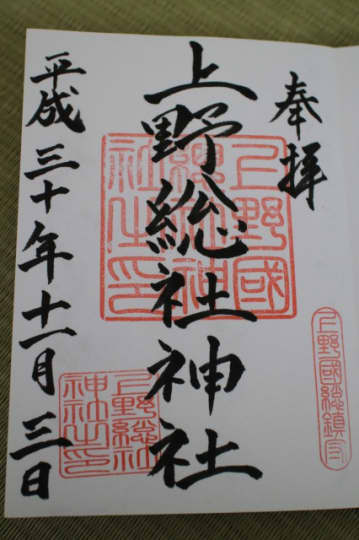 奉拝
上野総社神社
平成三十年十一月三日
上野國
総社神
社之印
上野國総鎮守
上野総社
神社之印